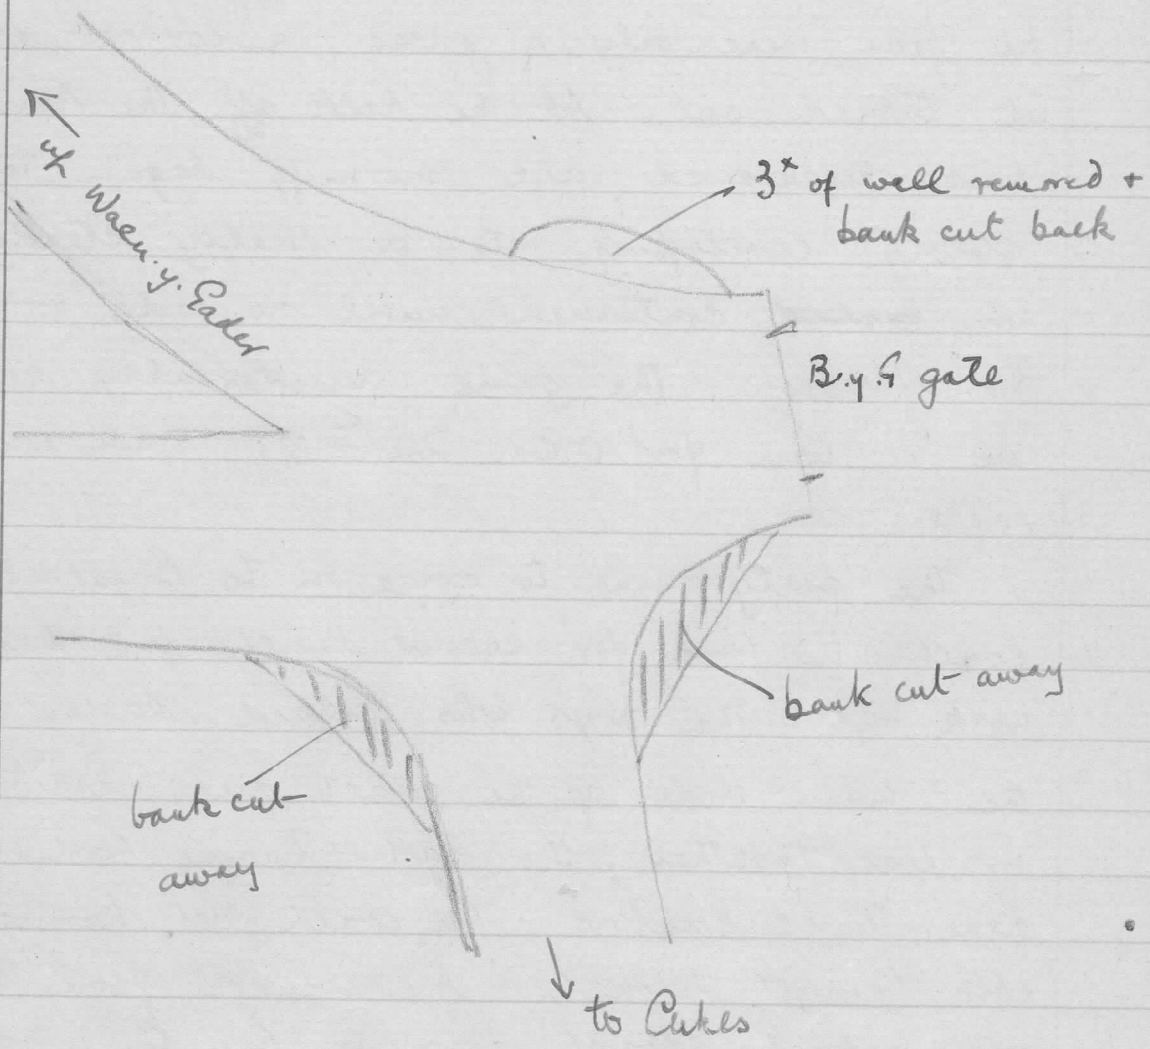 up Waen.y.Gader
3ˣ of wall removed +
bank cut back
B.y.G gate
bank cut away
bank cut
away
to